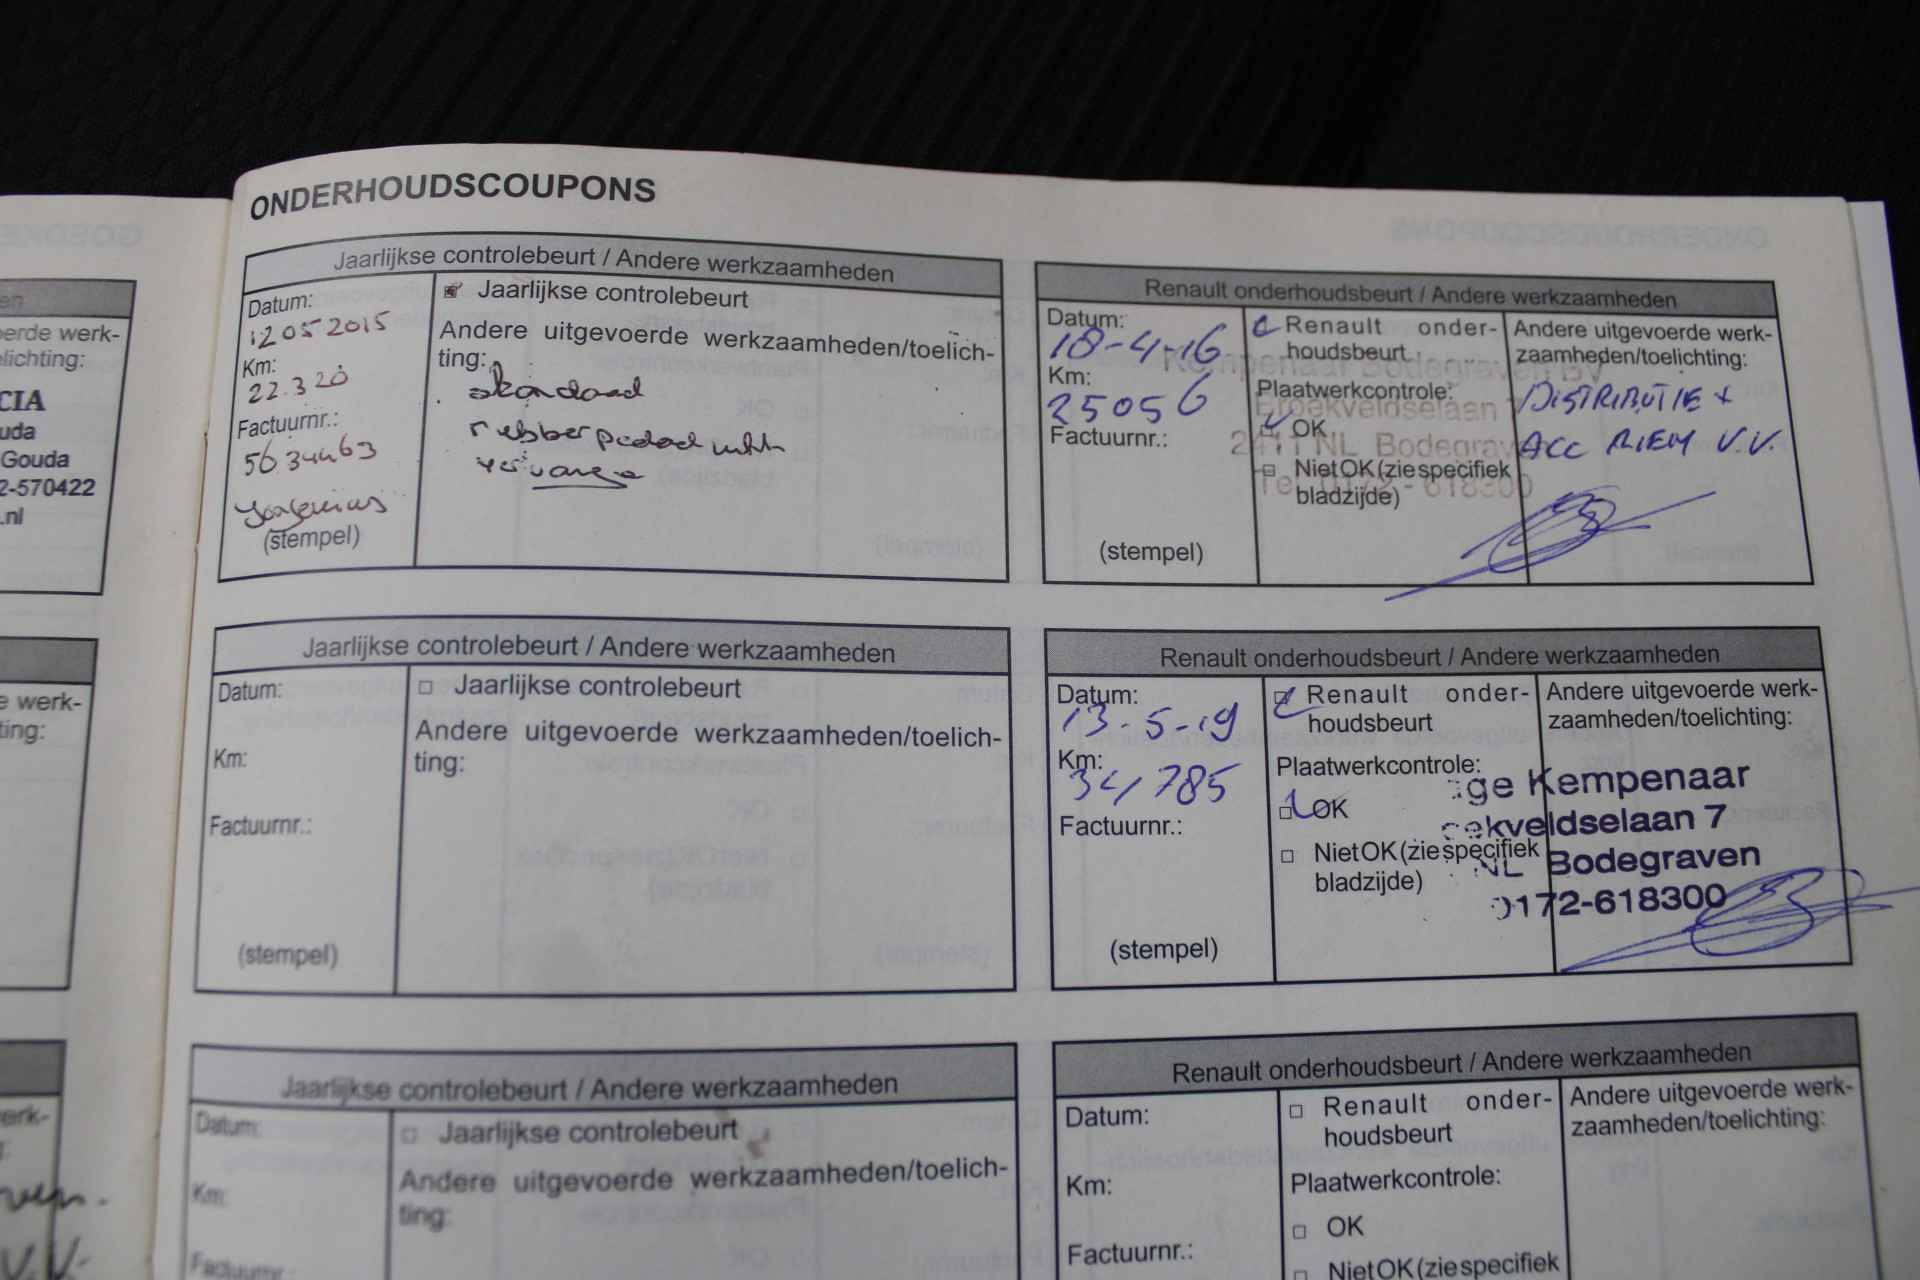 ONDERHOUDSCOUPONS
Jaarlijkse controlebeurt / Andere werkzaamheden
Datum:
12 05 2015
Km:
22.320
Factuurnr.:
(stempel)
Jaarlijkse controlebeurt
Andere uitgevoerde werkzaamheden/toelich-
ting:
standaard
rubber
Renault onderhoudsbeurt / Andere werkzaamheden
Datum:
18-4-16
Km:
25056
Factuurnr.:
(stempel)
Renault onder-
houdsbeurt
Plaatwerkcontrole:
OK
Niet OK (zie specifiek
bladzijde)
Andere uitgevoerde werk-
zaamheden/toelichting:
DISTRIBUTIE +
ACC RIEM V.V.
Kempenaar Bodegraven BV
Broekveldselaan 7
2411 NL Bodegraven
Tel. 0172 - 618300
Jaarlijkse controlebeurt / Andere werkzaamheden
Datum:
Km:
Factuurnr.:
(stempel)
Jaarlijkse controlebeurt
Andere uitgevoerde werkzaamheden/toelich-
ting:
Renault onderhoudsbeurt / Andere werkzaamheden
Datum:
13-5-19
Km:
34785
Factuurnr.:
(stempel)
Renault onder-
houdsbeurt
Plaatwerkcontrole:
OK
Niet OK (zie specifiek
bladzijde)
Andere uitgevoerde werk-
zaamheden/toelichting:
ge Kempenaar
ekveldselaan 7
NL Bodegraven
0172-618300
Jaarlijkse controlebeurt / Andere werkzaamheden
Datum:
Km:
Factuurnr.:
Jaarlijkse controlebeurt
Andere uitgevoerde werkzaamheden/toelich-
ting:
Renault onderhoudsbeurt / Andere werkzaamheden
Datum:
Km:
Factuurnr.:
Renault onder-
houdsbeurt
Plaatwerkcontrole:
OK
Niet OK (zie specifiek
Andere uitgevoerde werk-
zaamheden/toelichting:
en
oerde werk-
elichting:
CIA
uda
Gouda
2-570422
.nl
e werk-
ting:
erk-
g:
V.V.